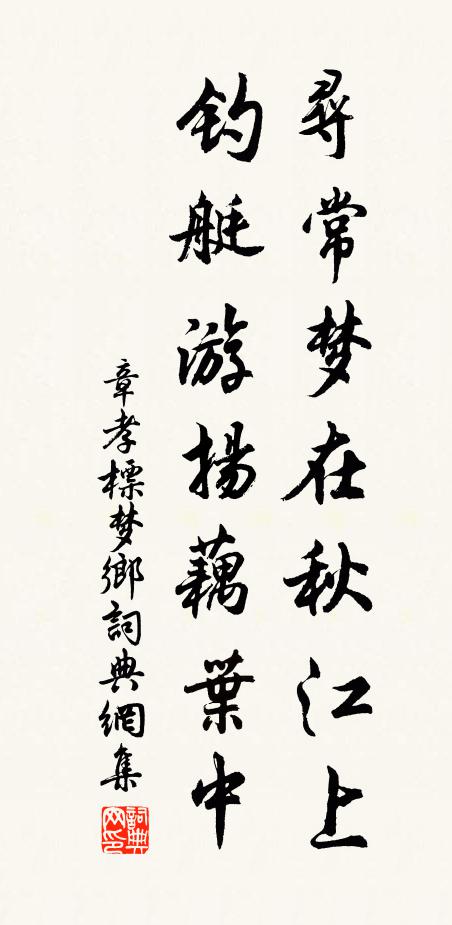 尋常梦在秋江上
钓艇游揚藕葉中
章孝標梦鄉詞典網集
詞典网印